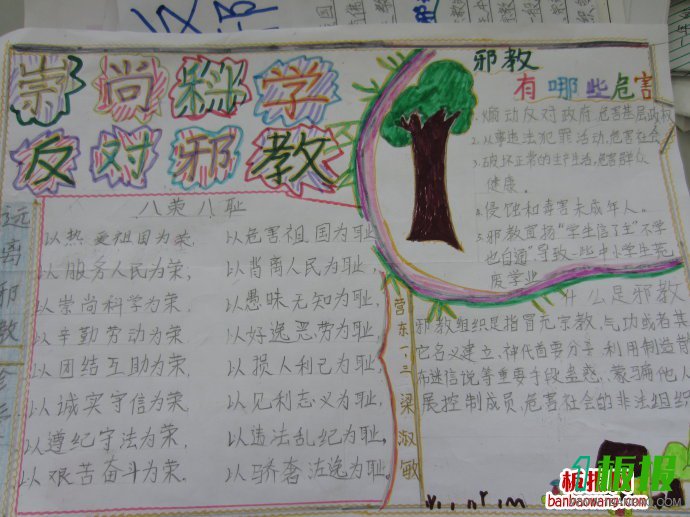 崇尚科学
反对邪教
八荣八耻
以热爱祖国为荣,以危害祖国为耻,
以服务人民为荣;以背离人民为耻,
以崇尚科学为荣,以愚昧无知为耻,
以辛勤劳动为荣;以好逸恶劳为耻,
以团结互助为荣,以损人利己为耻,
以诚实守信为荣,以见利忘义为耻,
以遵纪守法为荣,以违法乱纪为耻。
以艰苦奋斗为荣.以骄奢淫逸为耻。
远离邪教
邪教
有哪些危害
1.煽动反对政府,危害基层政权
2.从事违法犯罪活动,危害社会
3.破坏正常的生产生活,危害群众
健康。
4.侵蚀和毒害未成年人。
5.邪教宣扬"学生信了主"不学
也自通"导致一些中小学生荒
废学业
什么是邪教
邪教组织是指冒充宗教,气功或者其
它名义建立,神代首要分子,利用制造散
布迷信说等重要手段蛊惑、蒙骗他人
展控制成员,危害社会的非法组织
营东一.三梁淑敏
板报
banbaowang.com